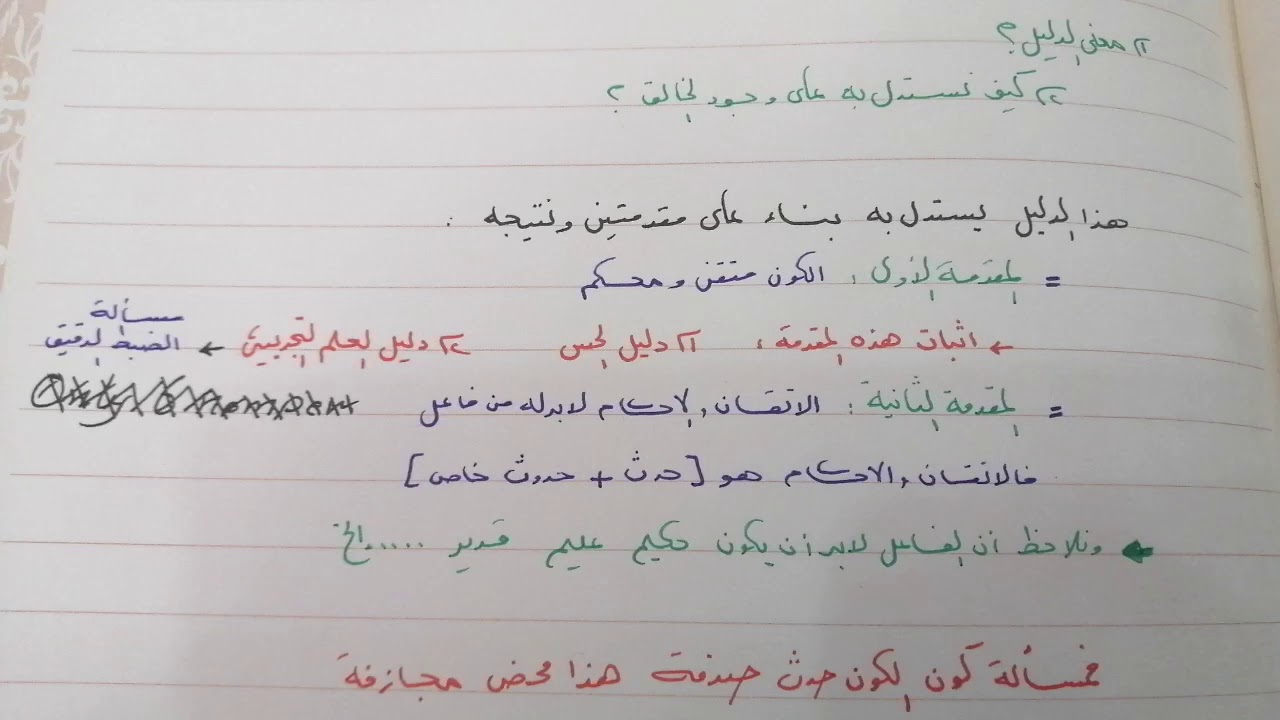 ١) معنى الدليل؟
٢) كيف نستدل به على وجود الخالق؟
هذا الدليل يستدل به بناء على مقدمتين ونتيجه :
= المقدمة الأولى : الكون متقن و محكم
← اثبات هذه المقدمة : ١) دليل الحس ٢) دليل العلم التجريبي ← مسألة الضبط الدقيق
= المقدمة الثانية : الاتقان والاحكام لابد له من فاعل
فالاتقان والاحكام هو [حدث + حدوث خاص]
ونلاحظ أن الفاعل لابد أن يكون حكيم عليم قدير .....الخ
فمسألة كون الكون حدث صدفة هذا محض مجازفة